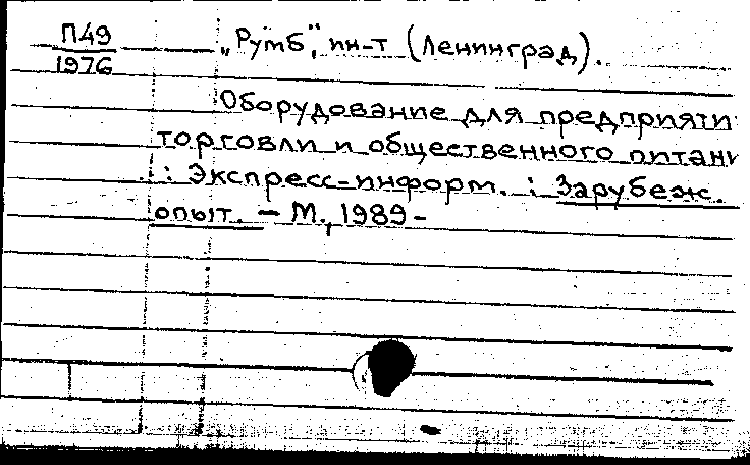 П49
1976
„Румб“, ин-т (Ленинград).
Оборудование для предприяти
торговли и общественного питани
: Экспресс-информ. : Зарубеж.
опыт. — М., 1989 -